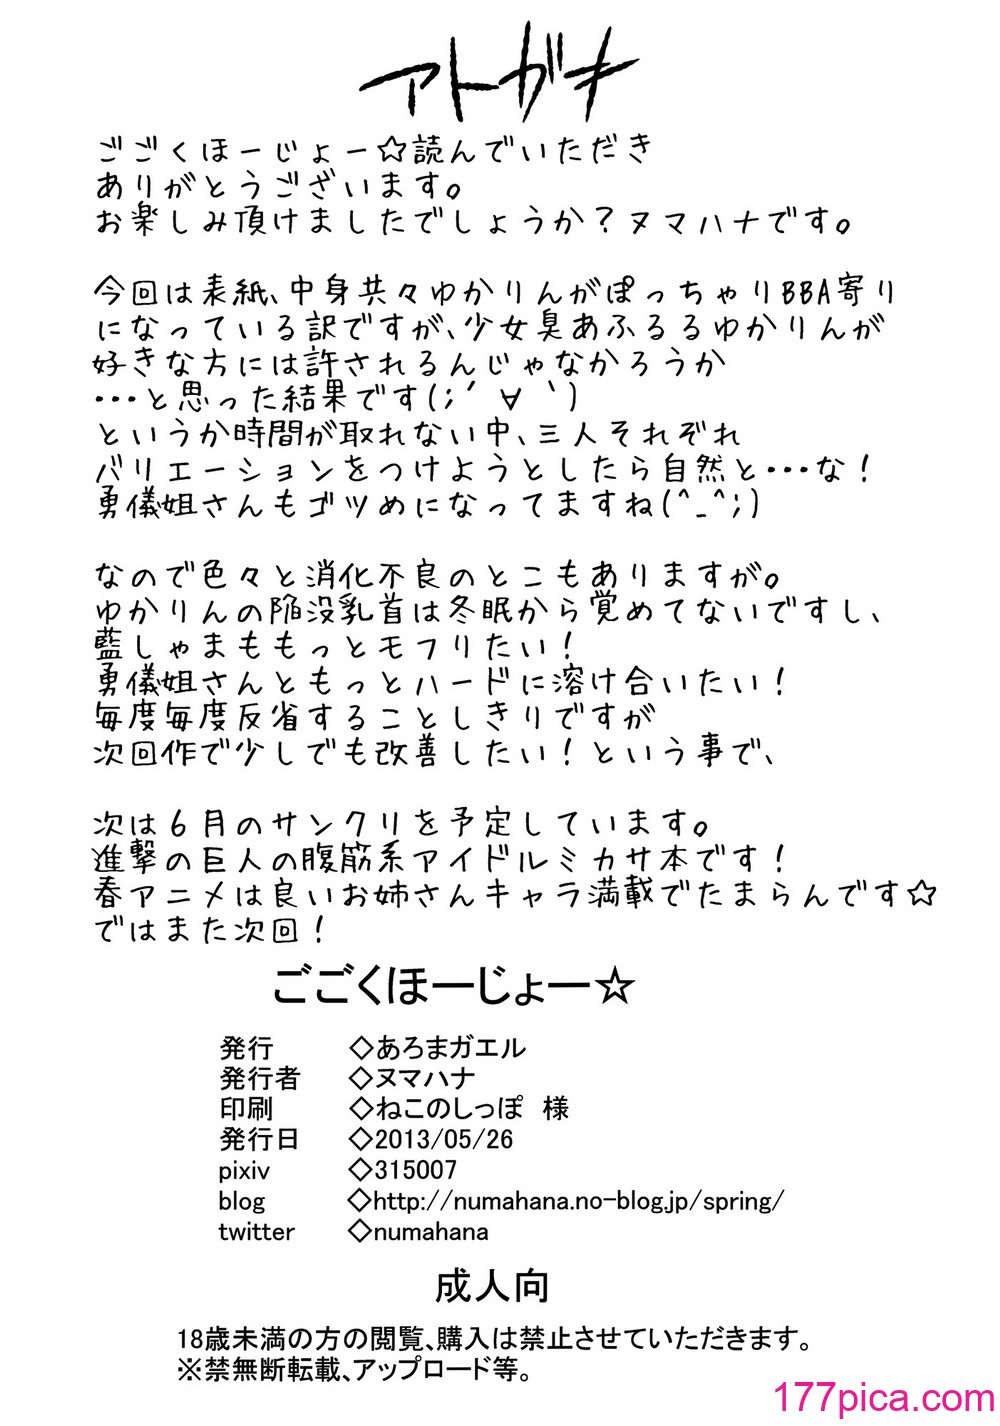 アトガキ
ごごくほーじょー☆読んでいただき
ありがとうございます。
お楽しみ頂けましたでしょうか？ヌマハナです。
今回は表紙、中身共々ゆかりんがぽっちゃりBBA寄り
になっている訳ですが、少女臭あふるるゆかりんが
好きな方には許されるんじゃなかろうか
・・・と思った結果です(;´∀｀)
というか時間が取れない中、三人それぞれ
バリエーションをつけようとしたら自然と・・・な！
勇儀姐さんもゴツめになってますね(^_^;)
なので色々と消化不良のとこもありますが。
ゆかりんの陥没乳首は冬眠から覚めてないですし、
藍しゃまももっとモフりたい！
勇儀姐さんともっとハードに溶け合いたい！
毎度毎度反省することしきりですが
次回作で少しでも改善したい！という事で、
次は6月のサンクリを予定しています。
進撃の巨人の腹筋系アイドルミカサ本です！
春アニメは良いお姉さんキャラ満載でたまらんです☆
ではまた次回！
ごごくほーじょー☆
発行 ◇あろまガエル
発行者 ◇ヌマハナ
印刷 ◇ねこのしっぽ 様
発行日 ◇2013/05/26
pixiv ◇315007
blog ◇http://numahana.no-blog.jp/spring/
twitter ◇numahana
成人向
18歳未満の方の閲覧、購入は禁止させていただきます。
※禁無断転載、アップロード等。
177pica.com